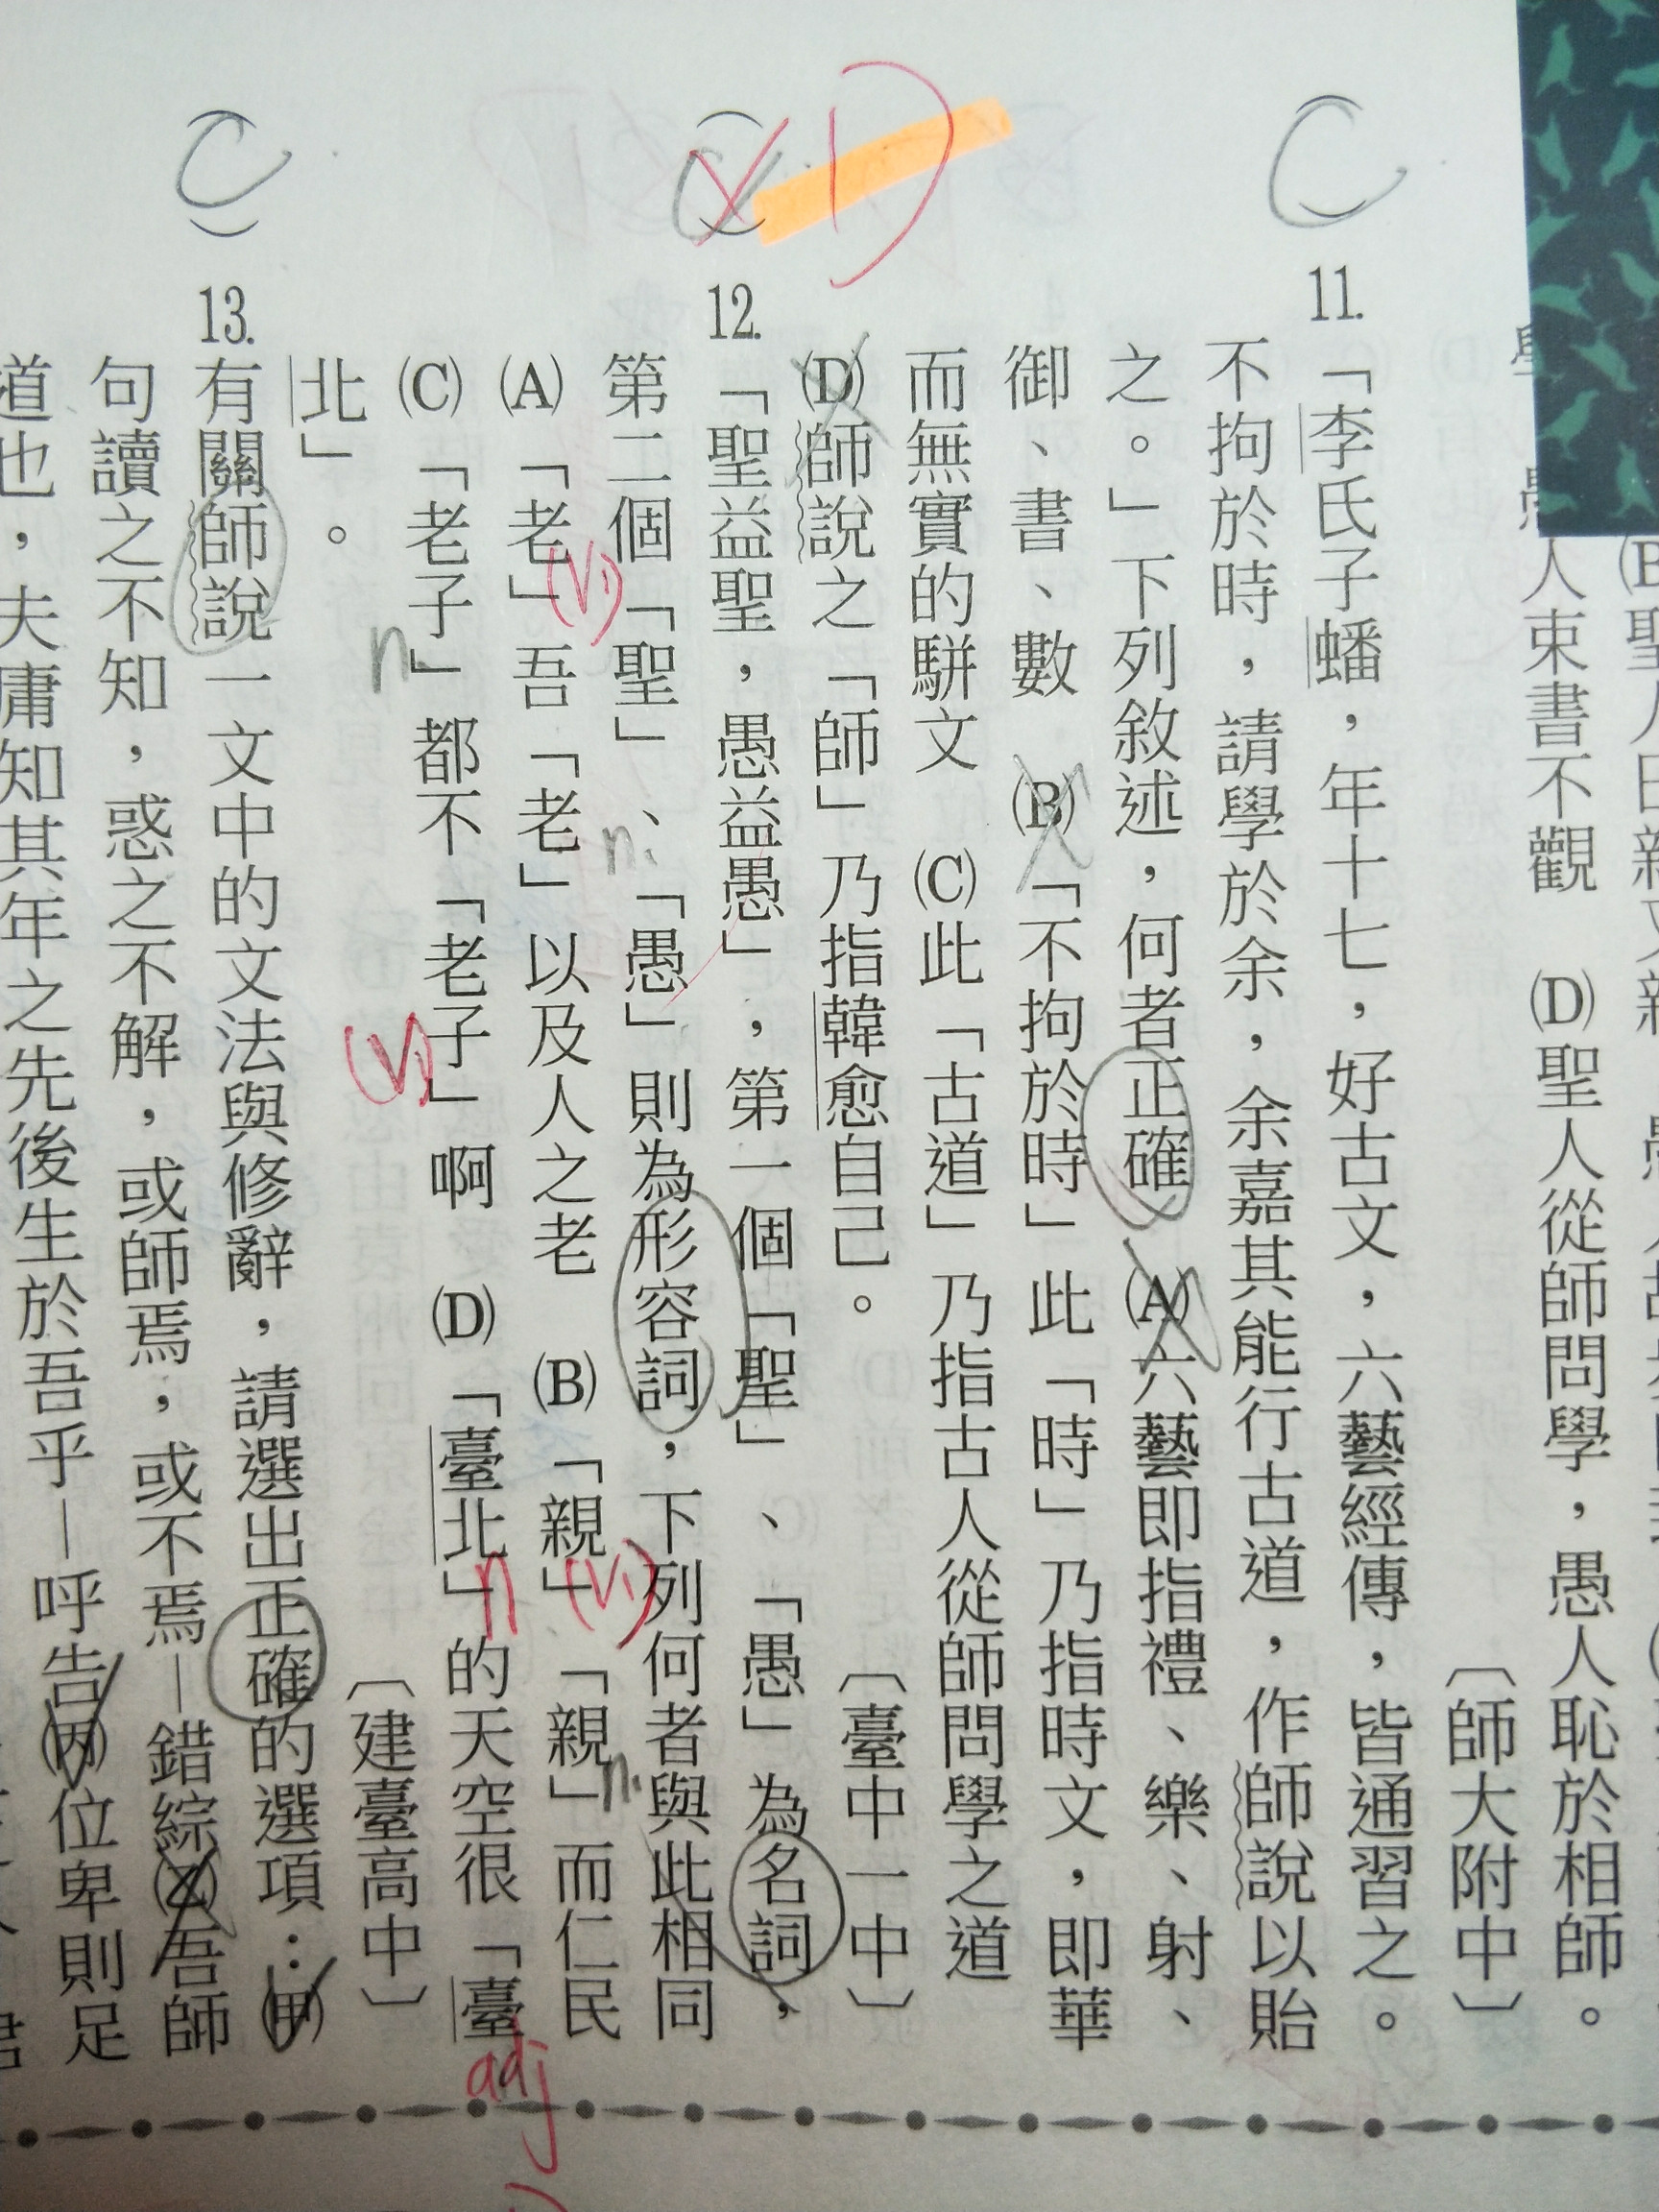 (B)聖人曰新又新
學
人束書不觀 (D)聖人從師問學,愚人恥於相師。
〔師大附中〕
C
11.「李氏子蟠,年十七,好古文,六藝經傳,皆通習之。
不拘於時,請學於余,余嘉其能行古道,作師說以貽
之。」下列敘述,何者正確 (A)六藝即指禮、樂、射、
御、書、數 (B)「不拘於時」此「時」乃指時文,即華
而無實的駢文 (C)此「古道」乃指古人從師問學之道
(D)師說之「師」乃指韓愈自己。〔臺中一中〕
C D
12.「聖益聖,愚益愚」,第一個「聖」、「愚」為名詞,
第二個「聖」、「愚」則為形容詞,下列何者與此相同
n.
(A)「老」吾「老」以及人之老 (B)「親」「親」而仁民
(V.) (V.) n.
(C)「老子」都不「老子」啊 (D)「臺北」的天空很「臺
n (V.) n adj
北」。〔建臺高中〕
C
13.有關師說一文中的文法與修辭,請選出正確的選項:(甲)
句讀之不知,惑之不解,或師焉,或不焉—錯綜(乙)吾師
道也,夫庸知其年之先後生於吾乎—呼告(丙)位卑則足